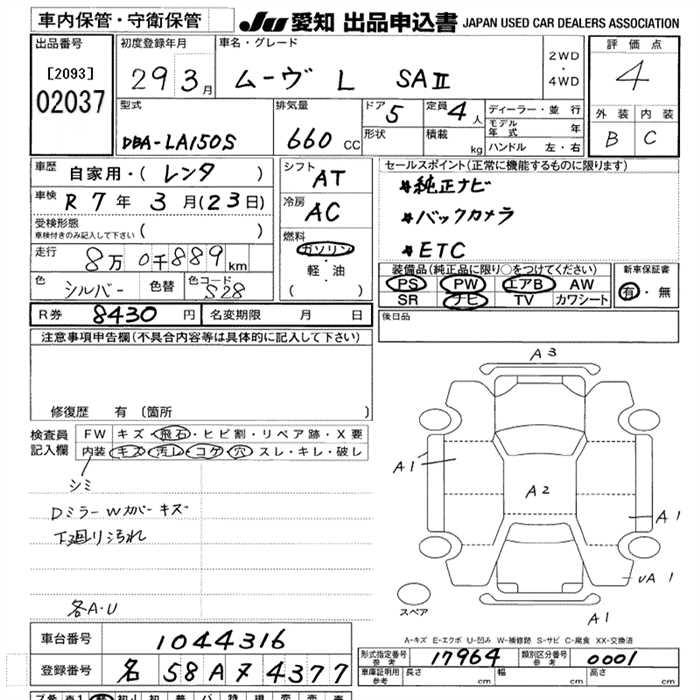 車内保管・守衛保管
JU 愛知 出品申込書 JAPAN USED CAR DEALERS ASSOCIATION
出品番号
[2093]
02037
初度登録年月
29 3月
車名・グレード
ムーヴ L SAⅡ
2WD
・
4WD
評価点
4
外装 内装
B C
型式
DBA-LA150S
排気量
660 CC
ドア 5
形状
定員 4人
積載 kg
ディーラー・並行
モデル年式 年
ハンドル 左・右
車歴
自家用・(レンタ)
車検 R 7年 3月(23日)
受検形態
車検付きのみ記入して下さい ( )
走行 8万0千889km
色 シルバー 色替 色コード S28
シフト AT
冷房 AC
燃料
ガソリン
軽・油
( )
セールスポイント(正常に機能するものに限ります)
*純正ナビ
*バックカメラ
*ETC
装備品(純正品に限り○をつけてください)
PS PW エアB AW
SR ナビ TV カワシート
新車保証書
有・無
R券 8430円 名変期限 月 日
後日品
注意事項申告欄(不具合内容等は具体的に記入して下さい)
修復歴 有 〔箇所 〕
検査員記入欄
FW キズ・飛石・ヒビ割・リペア跡・X要
内装 キズ・汚レ・コゲ・穴・スレ・キレ・破レ
シミ
Dミラーwカバーキズ
下廻り汚れ
各A・U
A3
A1
A2
A1
UA1
A1
スペア
A-キズ E-エクボ U-凹み W-補修跡 S-サビ C-腐食 XX-交換済
車台番号 1044316
登録番号 名 58A ア 4377
形式指定番号 参考 17964 類別区分番号 参考 0001
車庫証明用 参考 長さ cm 幅 cm 高さ cm